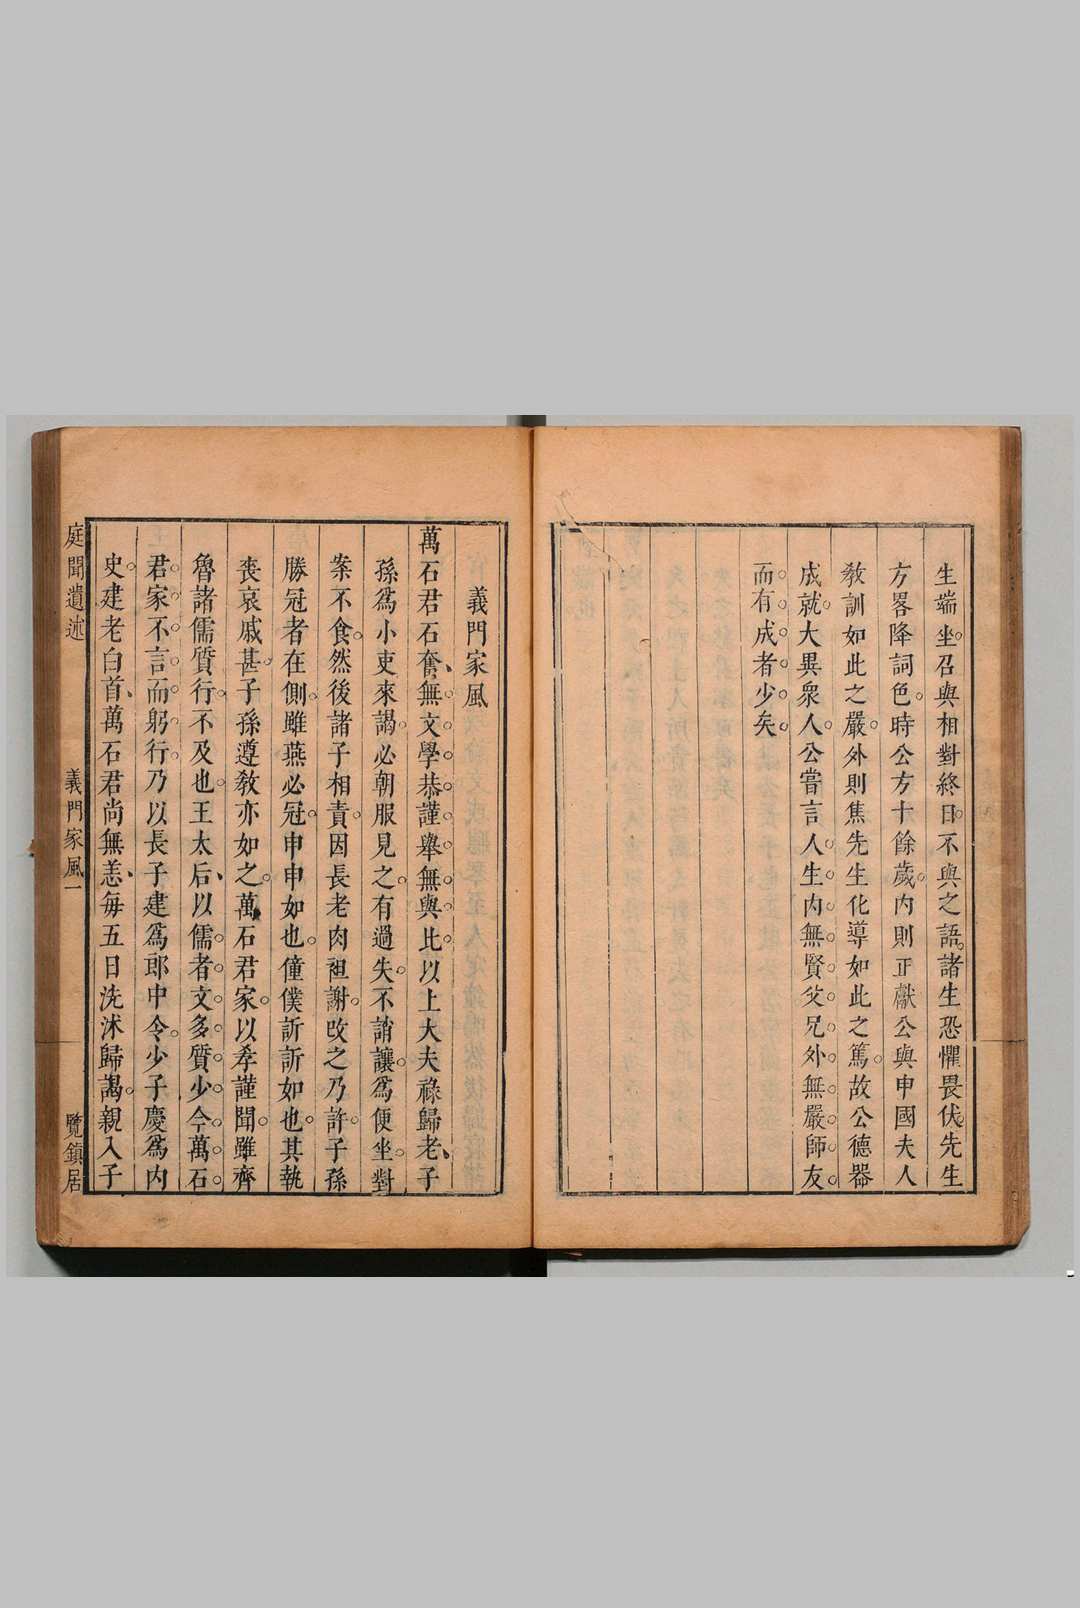 生端坐召與相對終日不與之語諸生恐懼畏伏先生
方畧降詞色時公方十餘歲內則正獻公與申國夫人
敎訓如此之嚴外則焦先生化導如此之篤故公德器
成就大異衆人公嘗言人生內無賢父兄外無嚴師友
而有成者少矣
義門家風
萬石君石奮無文學恭謹舉無與比以上大夫祿歸老子
孫爲小吏來謁必朝服見之有過失不誚讓爲便坐對
案不食然後諸子相責因長老肉袒謝改之乃許子孫
勝冠者在側雖燕必冠申申如也僮僕訢訢如也其執
喪哀戚甚子孫遵敎亦如之萬石君家以孝謹聞雖齊
魯諸儒質行不及也王太后以儒者文多質少今萬石
君家不言而躬行乃以長子建爲郎中令少子慶爲內
史建老白首萬石君尚無恙每五日洗沐歸謁親入子
庭聞遺述
義門家風一
覽鎮居